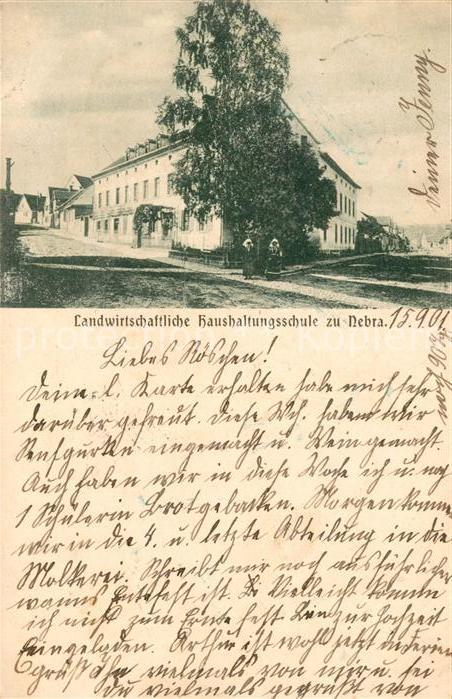 Landwirtschaftliche Haushaltungsschule zu Nebra. 15.9.01
Liebes Röschen!
Deine l. Karte erhalten habe mich sehr
darüber gefreut. Diese Wch. haben wir
Senfgurken eingemacht u. Wein gemacht.
Auch haben wir in diese Woche ich u. noch
1 Schülerin Brot gebacken. Morgen kommen
wir in die 4. u. letzte Abteilung in die
Molkerei. Schreibt mir noch ausführlicher
wanns Erntefest ist. Vielleicht komme
ich nicht zum Erntefest bin zur Hochzeit
eingeladen. Arthur ist wohl jetzt in
grüß ihn vielmals von mir u. sei
Du vielmals gegrüßt von
Deiner Jenny.